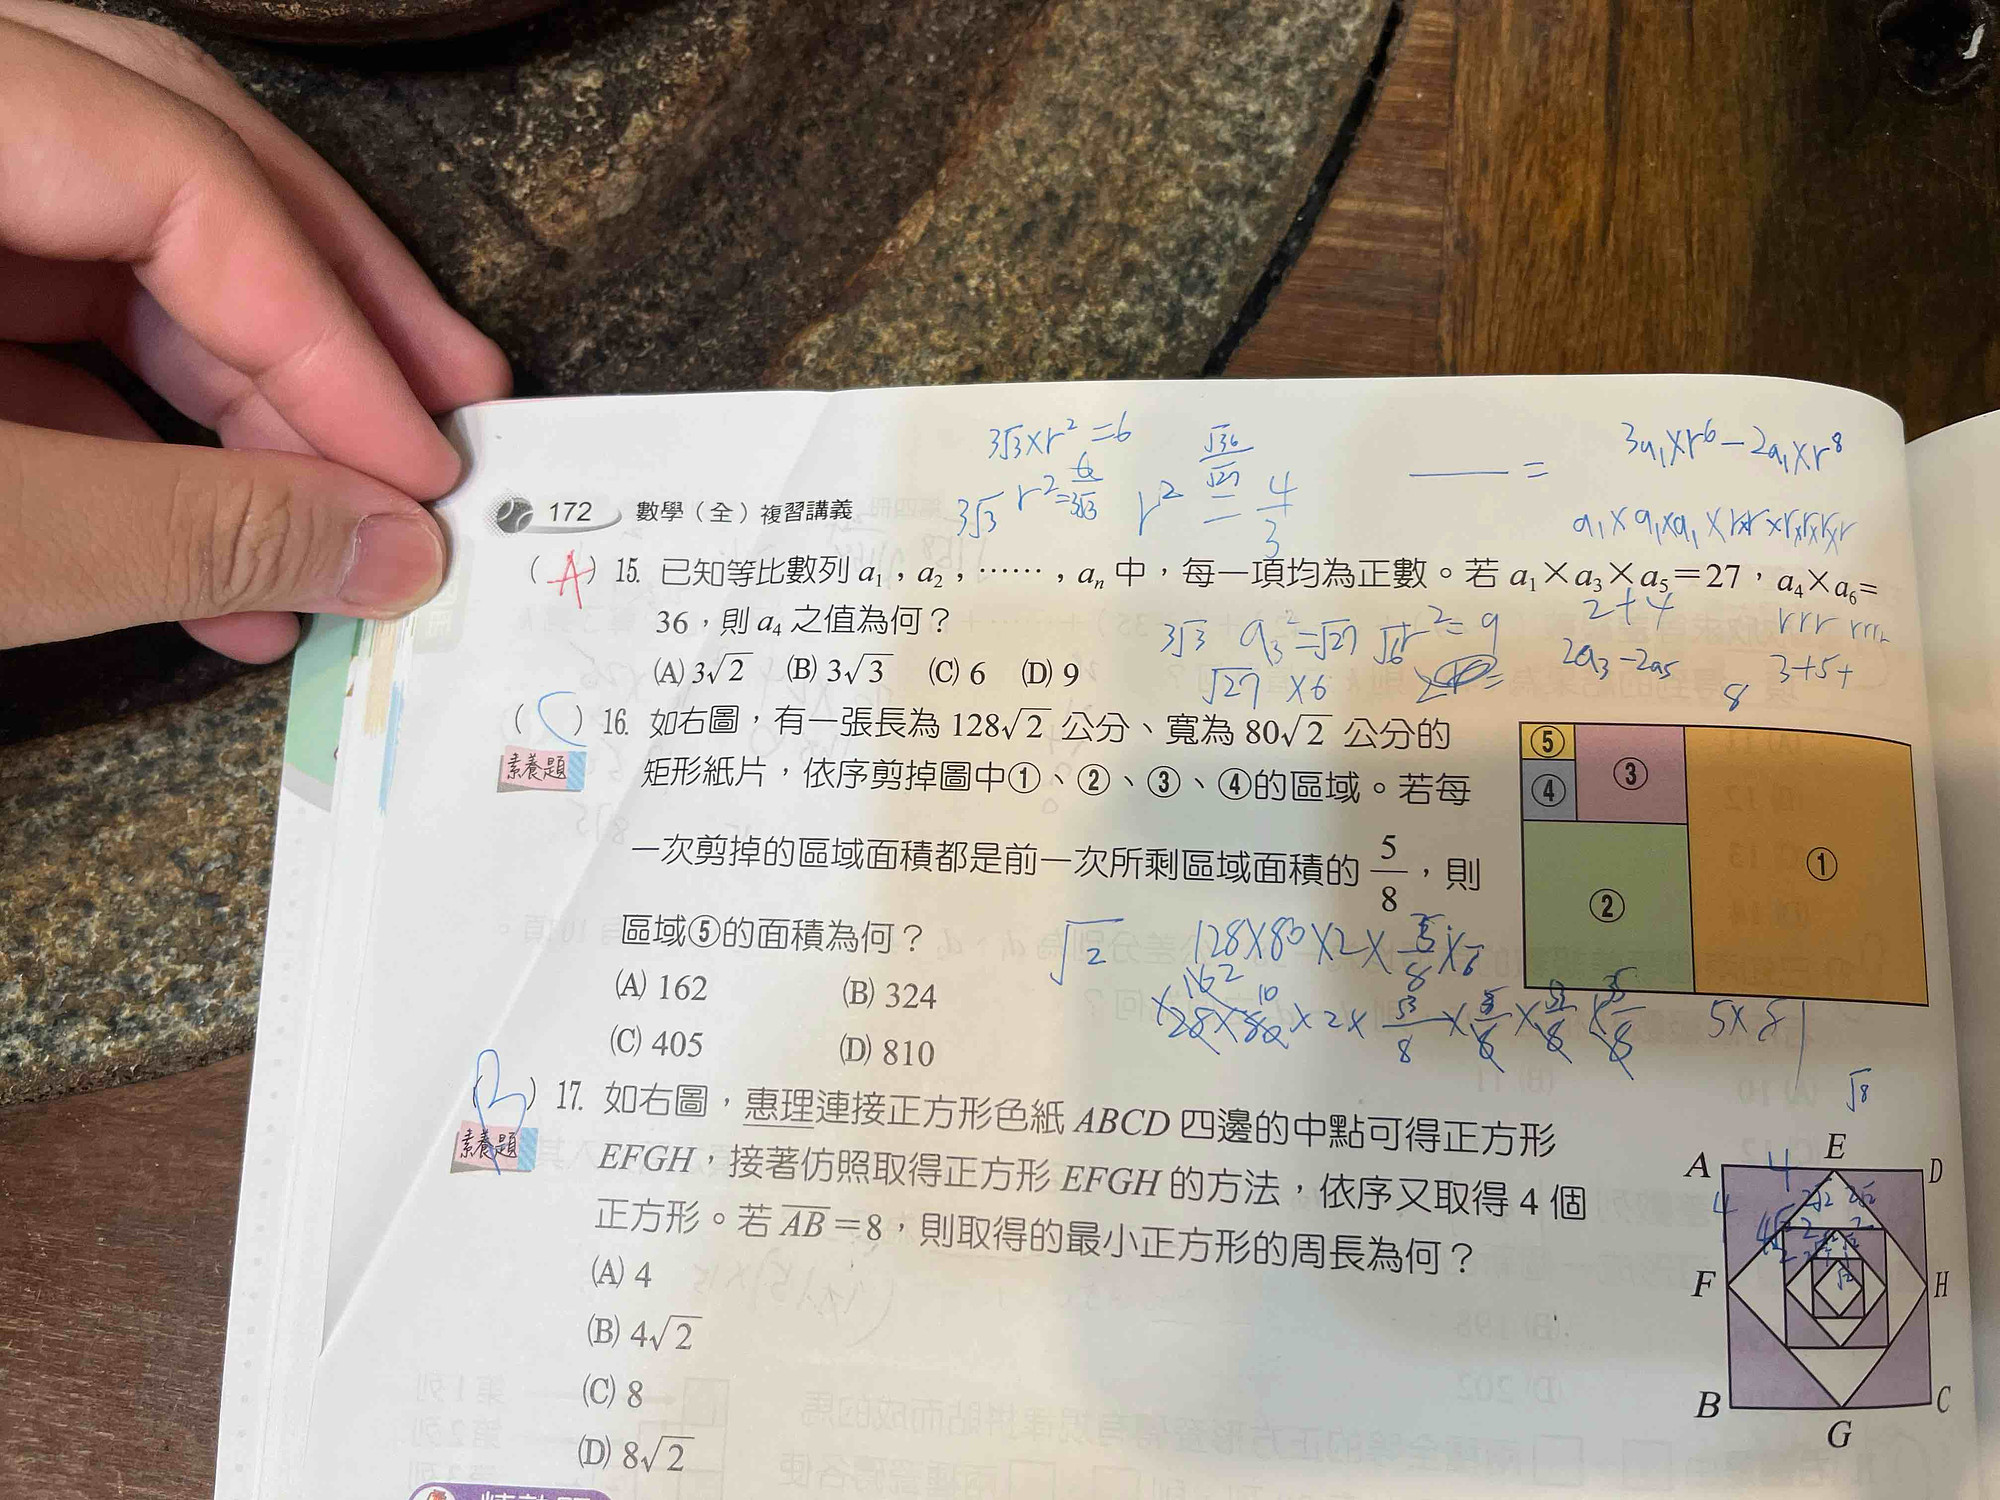 3√3×r²=6
√36
√27
3a₁×r⁶−2a₁×r⁸
=
3√3 r²=6/3√3 r² = 4/3
172 數學（全）複習講義
a₁×a₁×a₁×r×r×r×r×r×r
（A）15. 已知等比數列 a₁，a₂，……，aₙ 中，每一項均為正數。若 a₁×a₃×a₅＝27，a₄×a₆＝
36，則 a₄ 之值為何？
(A) 3√2 (B) 3√3 (C) 6 (D) 9
3√3 a₃²=√27
2+4
rrr rrr
√27 ×6
2a₃−2a₅
3+5+
8
（C）16. 如右圖，有一張長為 128√2 公分、寬為 80√2 公分的
素養題
矩形紙片，依序剪掉圖中①、②、③、④的區域。若每
一次剪掉的區域面積都是前一次所剩區域面積的 5/8，則
區域⑤的面積為何？
(A) 162 (B) 324
(C) 405 (D) 810
⑤
④
③
②
①
√2 128×80×2×
5×81
√8
（B）17. 如右圖，惠理連接正方形色紙 ABCD 四邊的中點可得正方形
素養題
EFGH，接著仿照取得正方形 EFGH 的方法，依序又取得 4 個
正方形。若 A̅B̅＝8，則取得的最小正方形的周長為何？
(A) 4
(B) 4√2
(C) 8
(D) 8√2
A E D
4
4 2√2 2√2
F H
B G C